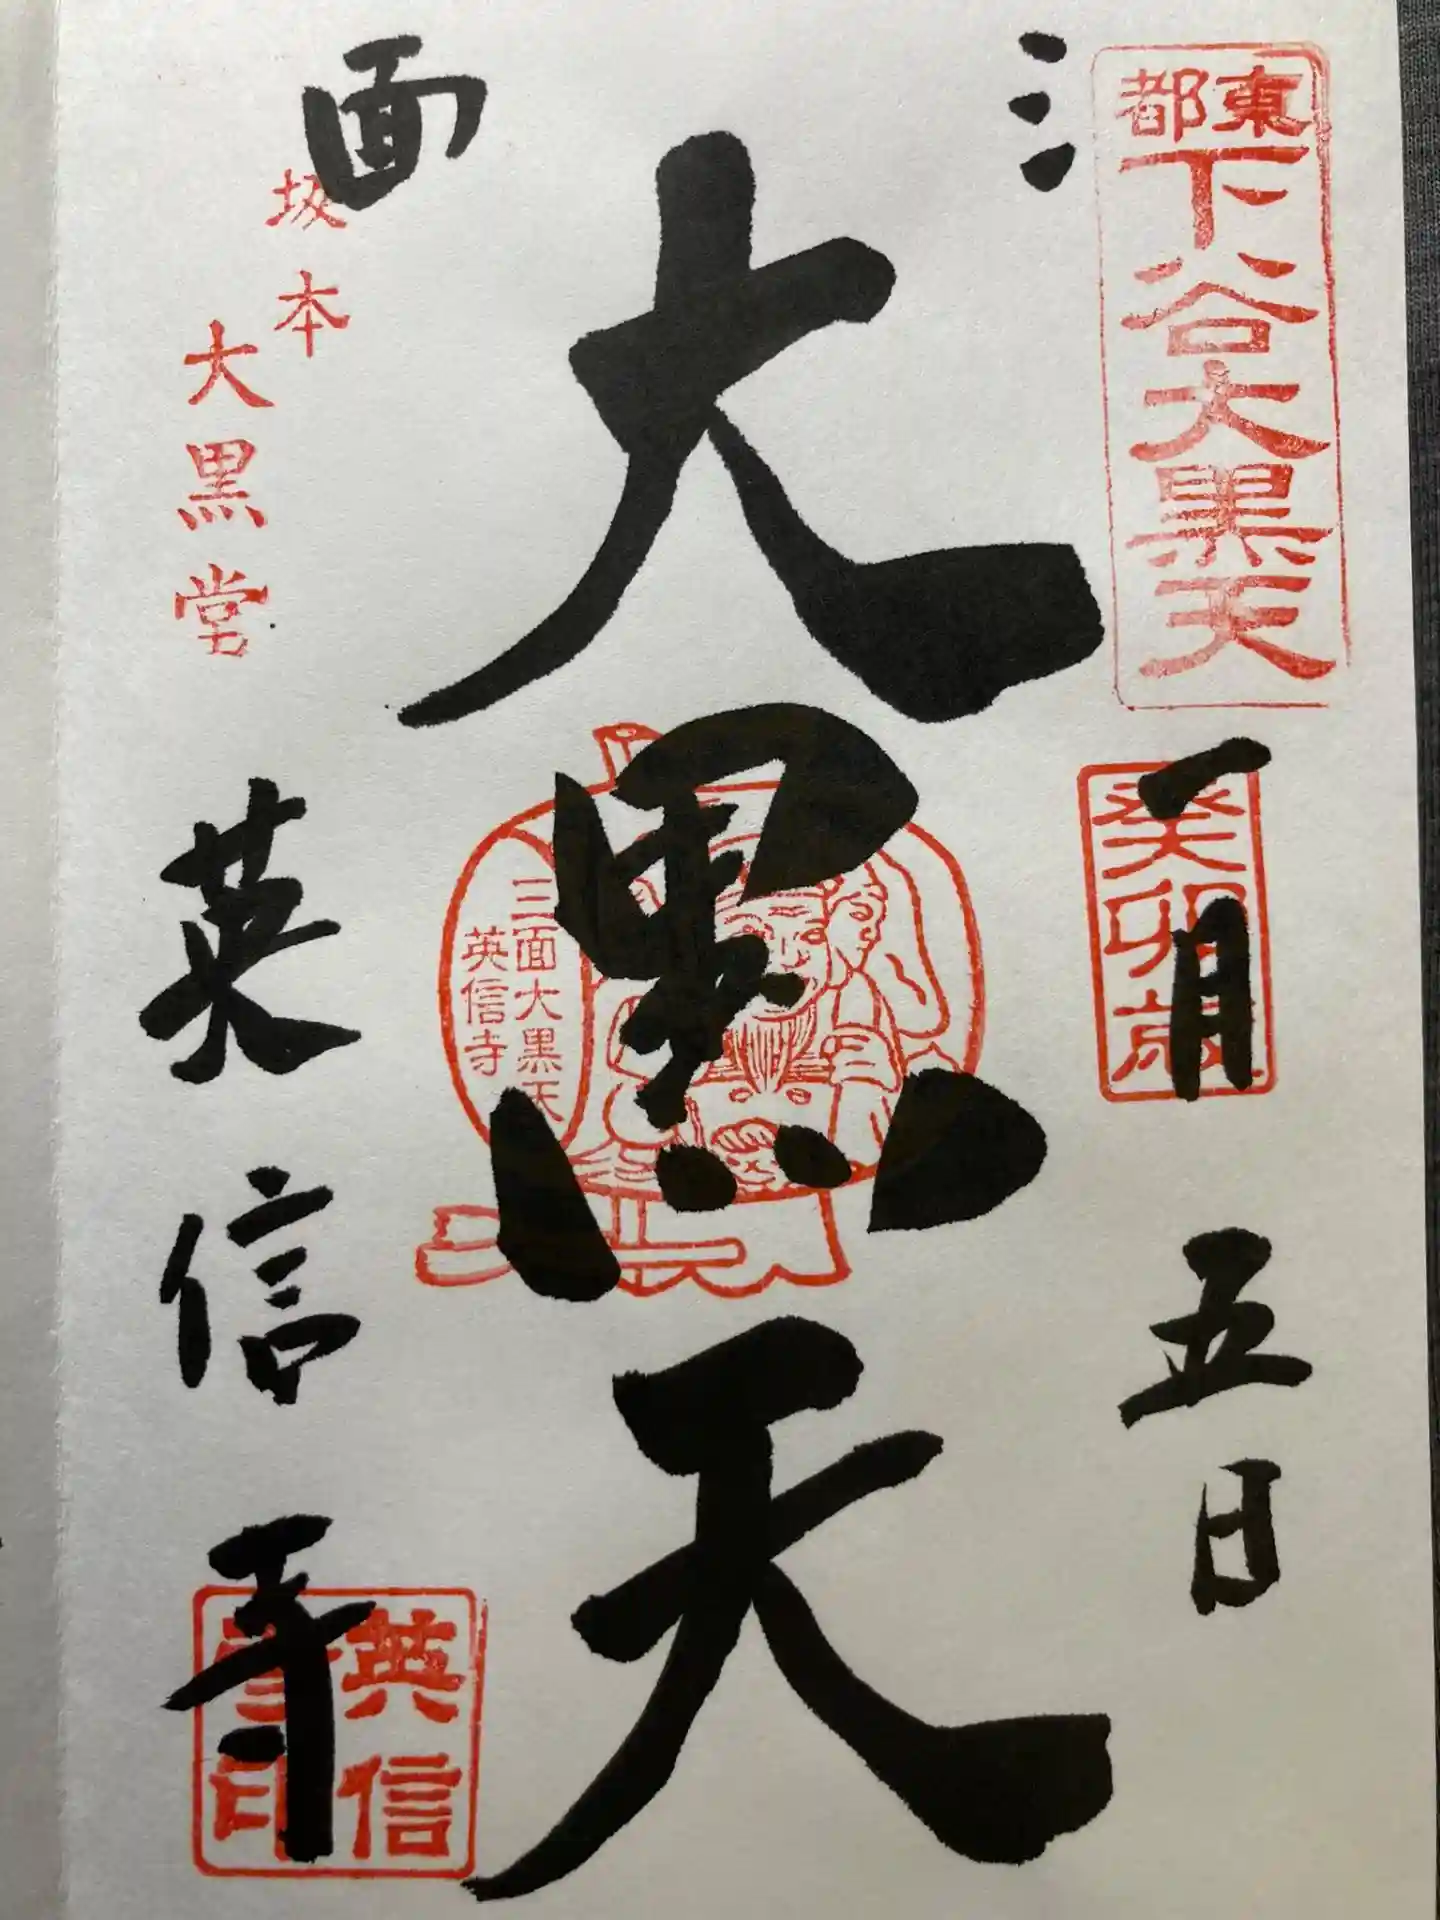 東都
下谷大黒天
癸卯歳
一月五日
三面
大黒天
三面大黒天
英信寺
坂本
大黒堂
英信寺
英信
寺印